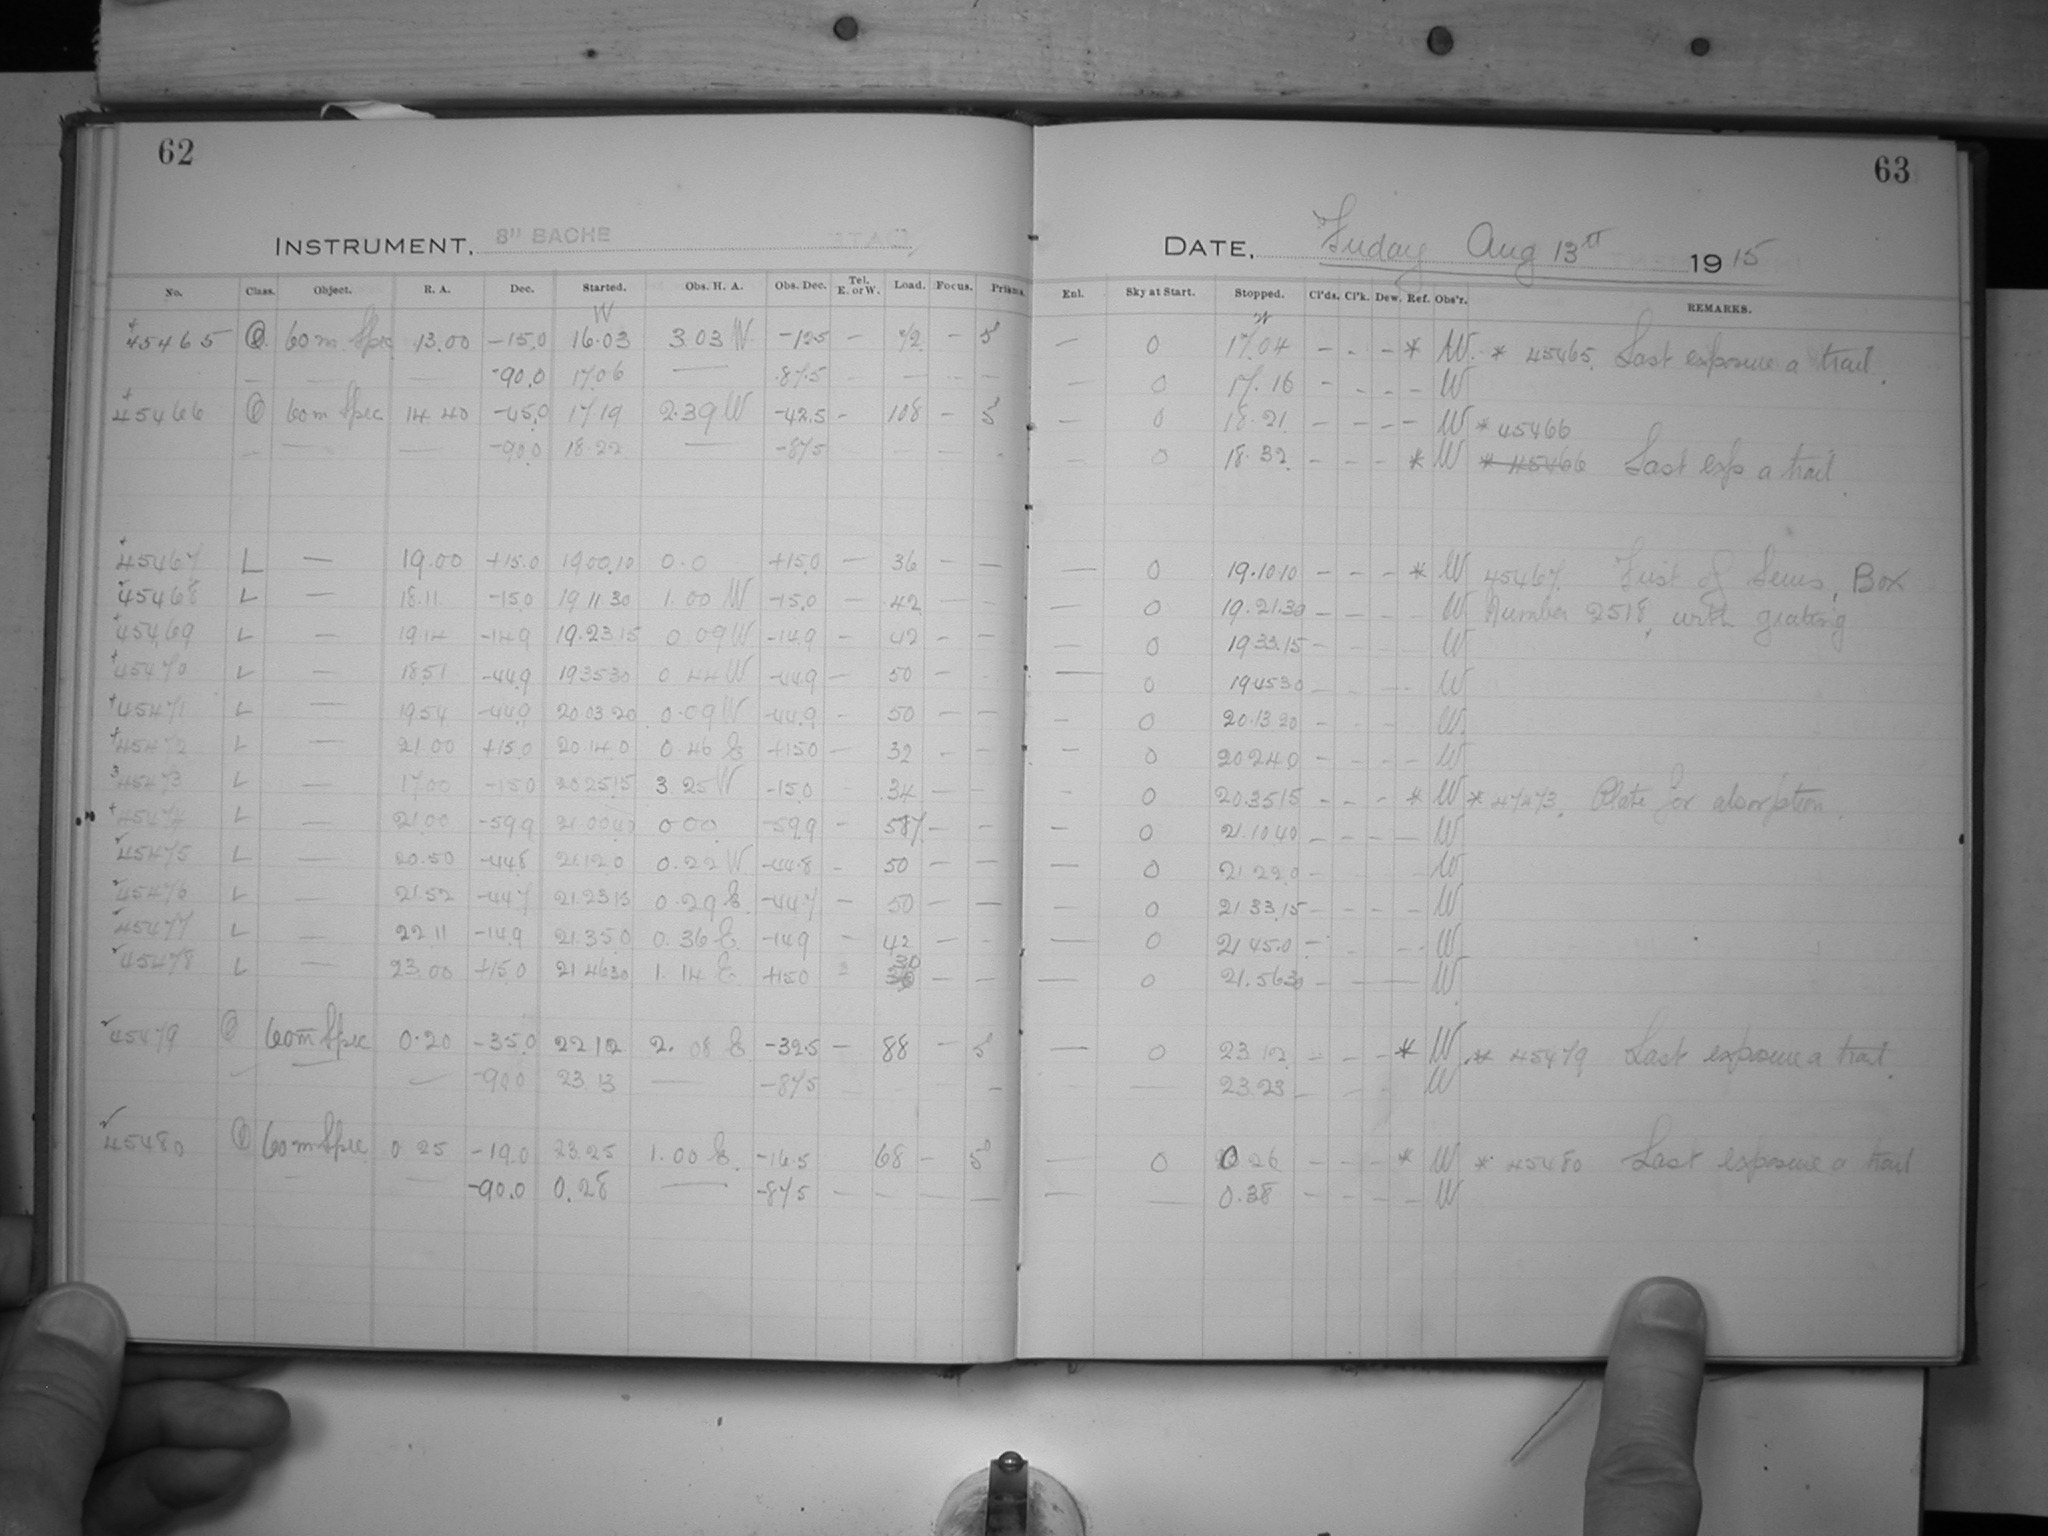 62
INSTRUMENT, 8" BACHE
No. Class. Object. R. A. Dec. Started. Obs. H. A. Obs. Dec. Tel. E. or W. Load. Focus. Prisms.
W
45465 60 m Spec 13.00 -15.0 16.03 3.03 W -12.5 - 72 - 5°
-90.0 17.06 — -87.5
45466 60 m Spec 14 40 -45.0 17.19 2.39 W -42.5 - 108 - 5°
-90.0 18.22 — -87.5
45467 L — 19.00 +15.0 19 00.10 0.0 +15.0 — 36 - —
45468 L — 18.11 -15.0 19 11 30 1.00 W -15.0 - 42 - -
45469 L — 19.14 -14.9 19.23.15 0 09 W -14.9 - 42 - -
45470 L — 18.51 -44.9 19 35 30 0 44 W -44.9 - 50 - -
45471 L — 19.54 -44.9 20.03 20 0.09 W -44.9 - 50 - -
45472 L — 21.00 +15.0 20.14.0 0.46 E +15.0 — 32 - —
45473 L — 17.00 -15.0 20 25 15 3.25 W -15.0 34 - —
45474 L — 21.00 -59.9 21.00 40 0 00 -59.9 - 58 - -
45475 L — 20.50 -44.8 21.12.0 0.22 W -44.8 - 50 - —
45476 L — 21.52 -44.7 21.23 15 0.29 E -44.7 - 50 - —
45477 L — 22 11 -14.9 21.35.0 0.36 E -14.9 - 42 - -
45478 L — 23.00 +15.0 21 46 30 1.14 E +15.0 30 - —
45479 60 m Spec 0.20 -35.0 22 12 2.08 E -32.5 - 88 - 5°
-90.0 23 13 — -87.5 —
45480 60 m Spec 0 25 -19.0 23.25 1.00 E -16.5 68 - 5°
-90.0 0.28 — -87.5 - - —
63
DATE, Friday Aug 13th 1915
Enl. Sky at Start. Stopped. Cl'ds. Cl'k. Dew. Ref. Obs'r. REMARKS.
W
— 0 17.04 - - - * W. * 45465. Last exposure a trail.
— 0 17.16 - - - - W
— 0 18.21 - - - - W * 45466
— 0 18.32 - - - * W * 45466 Last exp a trail.
— 0 19.10 10 - - - * W 45467. First of Series, Box
— 0 19.21.30 - - - - W Number 2518, with grating
— 0 19 33.15 - - - - W
— 0 19 45 30 - - - - W
— 0 20.13 20 - - - - W.
— 0 20 24 0 - - - - W
- 0 20.35 15 - - - * W * 47473. Plate for absorption.
— 0 21.10 40 - - - — W
— 0 21 22 0 - W
— 0 21 33.15 - - - - W
— 0 21 45.0 - - - W
— 0 21.56 30 - - - W
— 0 23 12 - - - * W * 45479 Last exposure a trail.
— 23.23 - - - W
— 0 0 26 - - - * W * 45480 Last exposure a trail
— — 0.38 - - - - W